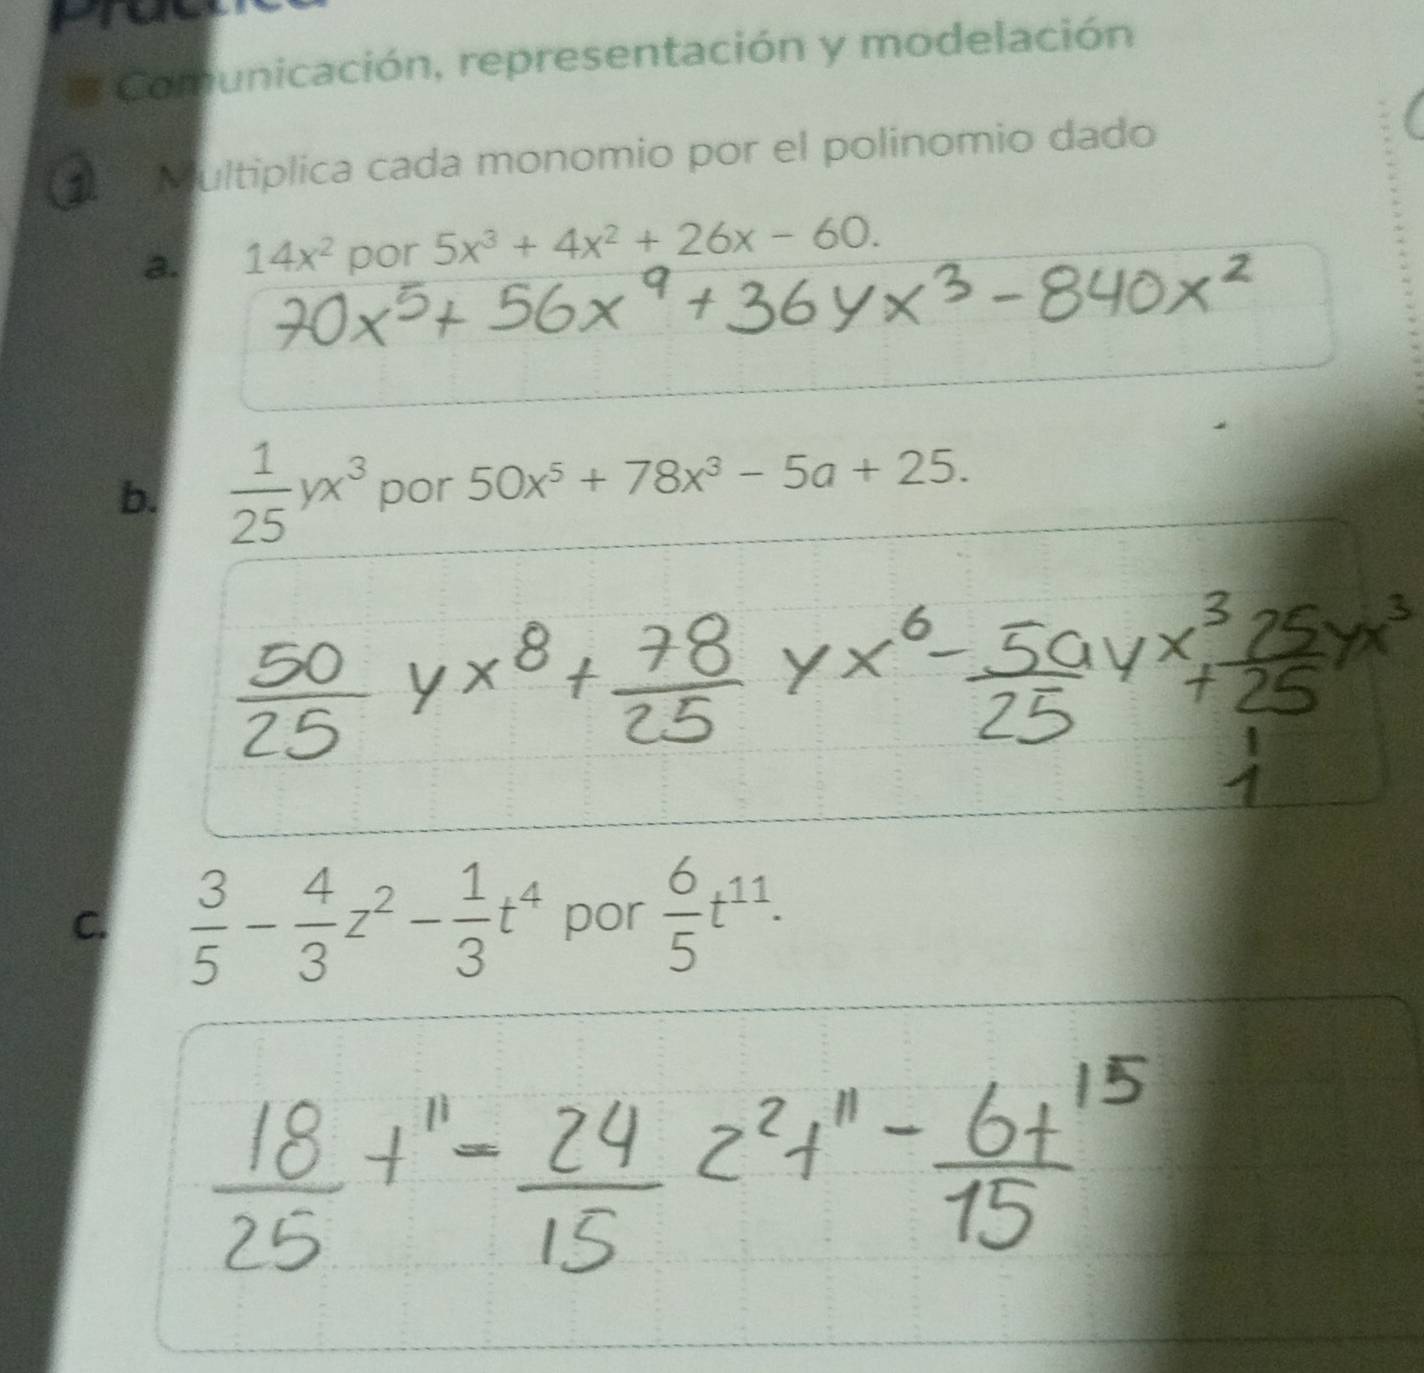 Comunicación, representación y modelación
1. Multiplica cada monomio por el polinomio dado
a. 14x² por 5x³ + 4x² + 26x − 60.
70x⁵ + 56x⁹ + 36yx³ − 840x²
b. 1/25 yx³ por 50x⁵ + 78x³ − 5a + 25.
50/25 yx⁸ + 78/25 yx⁶ − 5a/25 yx³ + 25/25 yx³
1
1
c. 3/5 − 4/3 z² − 1/3 t⁴ por 6/5 t¹¹.
18/25 t¹¹ − 24/15 z²t¹¹ − 6t¹⁵/15